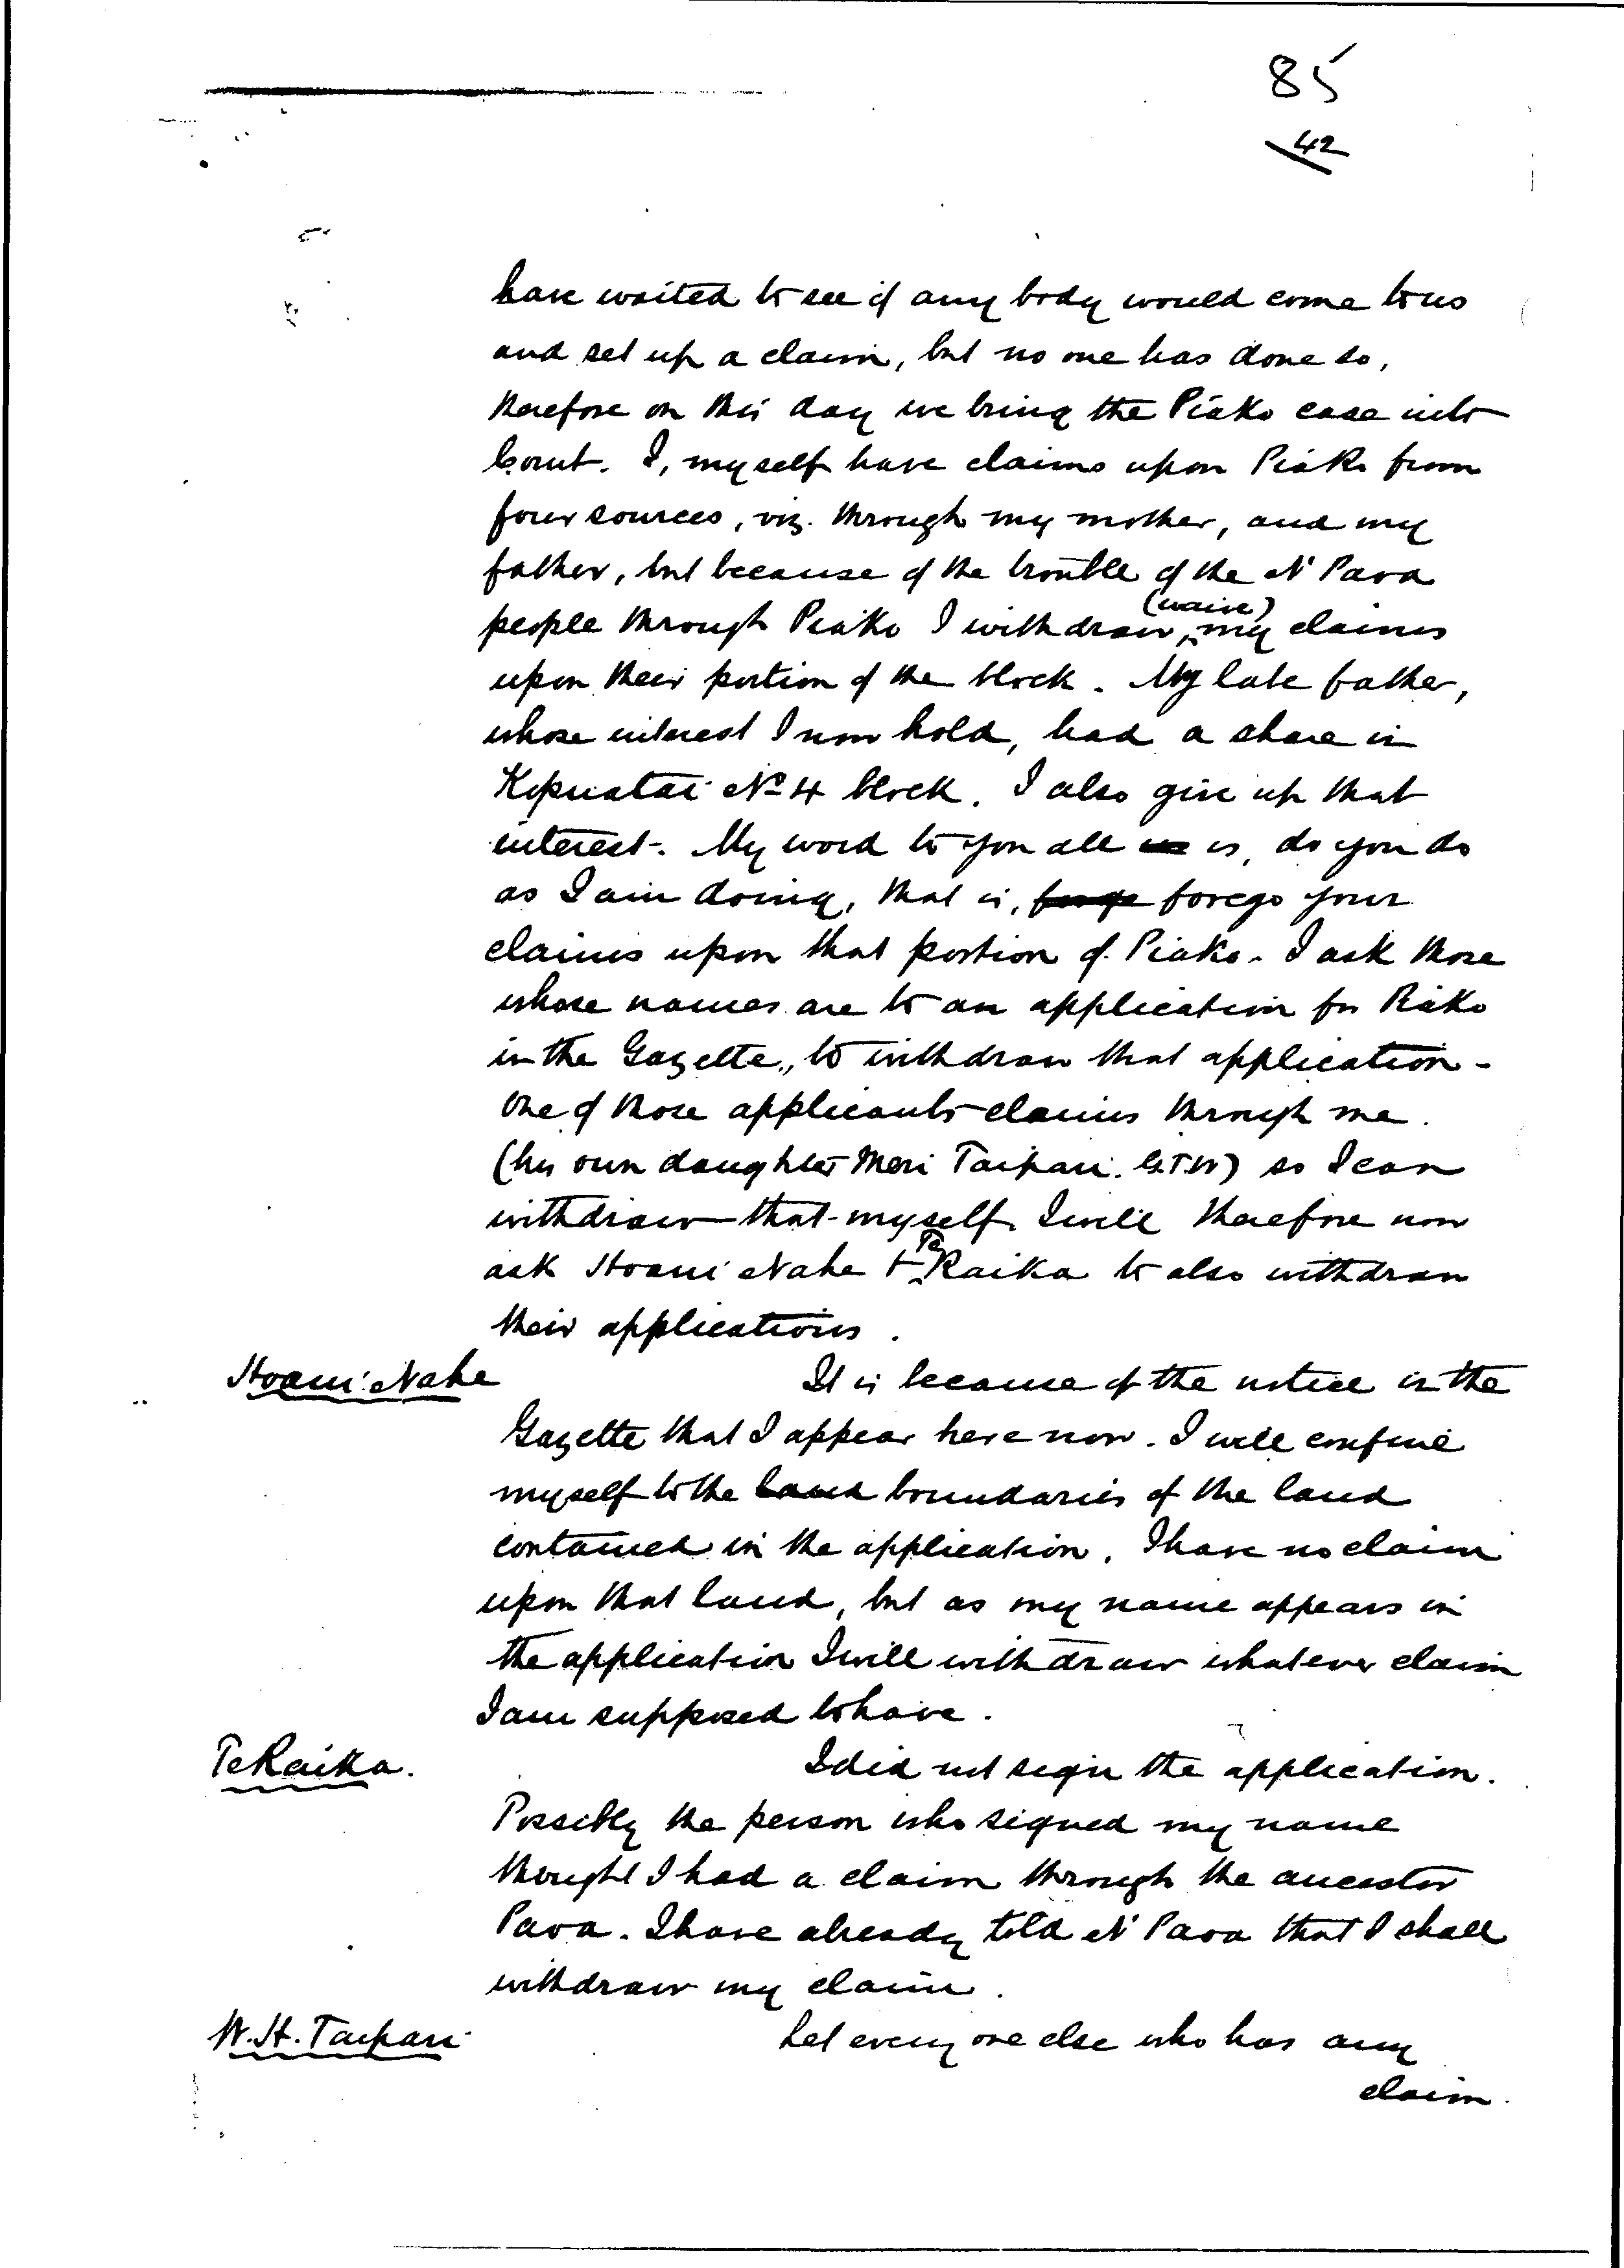 85
42
have waited to see if any body would come to us
and set up a claim, but no one has done so,
therefore on this day we bring the Piako case into
Court. I, myself have claims upon Piako from
four sources, viz. through my mother, and my
father, but because of the trouble of the N' Paoa
people through Piako I withdraw, (waive) my claims
upon their portion of the block. My late father,
whose interest I now hold, had a share in
Kopuatai No 4 block. I also give up that
interest. My word to you all is, do you do
as I am doing, that is, forego your
claims upon that portion of Piako. I ask those
whose names are to an application for Piako
in the Gazette, to withdraw that application -
One of those applicants claims through me.
(his own daughter Meri Taipari. G.T.W) so I can
withdraw that myself. I will therefore now
ask Hoani Nahe + Te Raika to also withdraw
their applications.
Hoani Nahe It is because of the notice in the
Gazette that I appear here now. I will confine
myself to the land boundaries of the land
contained in the application. I have no claim
upon that land, but as my name appears in
the application I will withdraw whatever claim
I am supposed to have.
Te Raika. I did not sign the application.
Possibly the person who signed my name
thought I had a claim through the ancestor
Paoa. I have already told N' Paoa that I shall
withdraw my claim.
W.H. Taipari Let every one else who has any
claim.